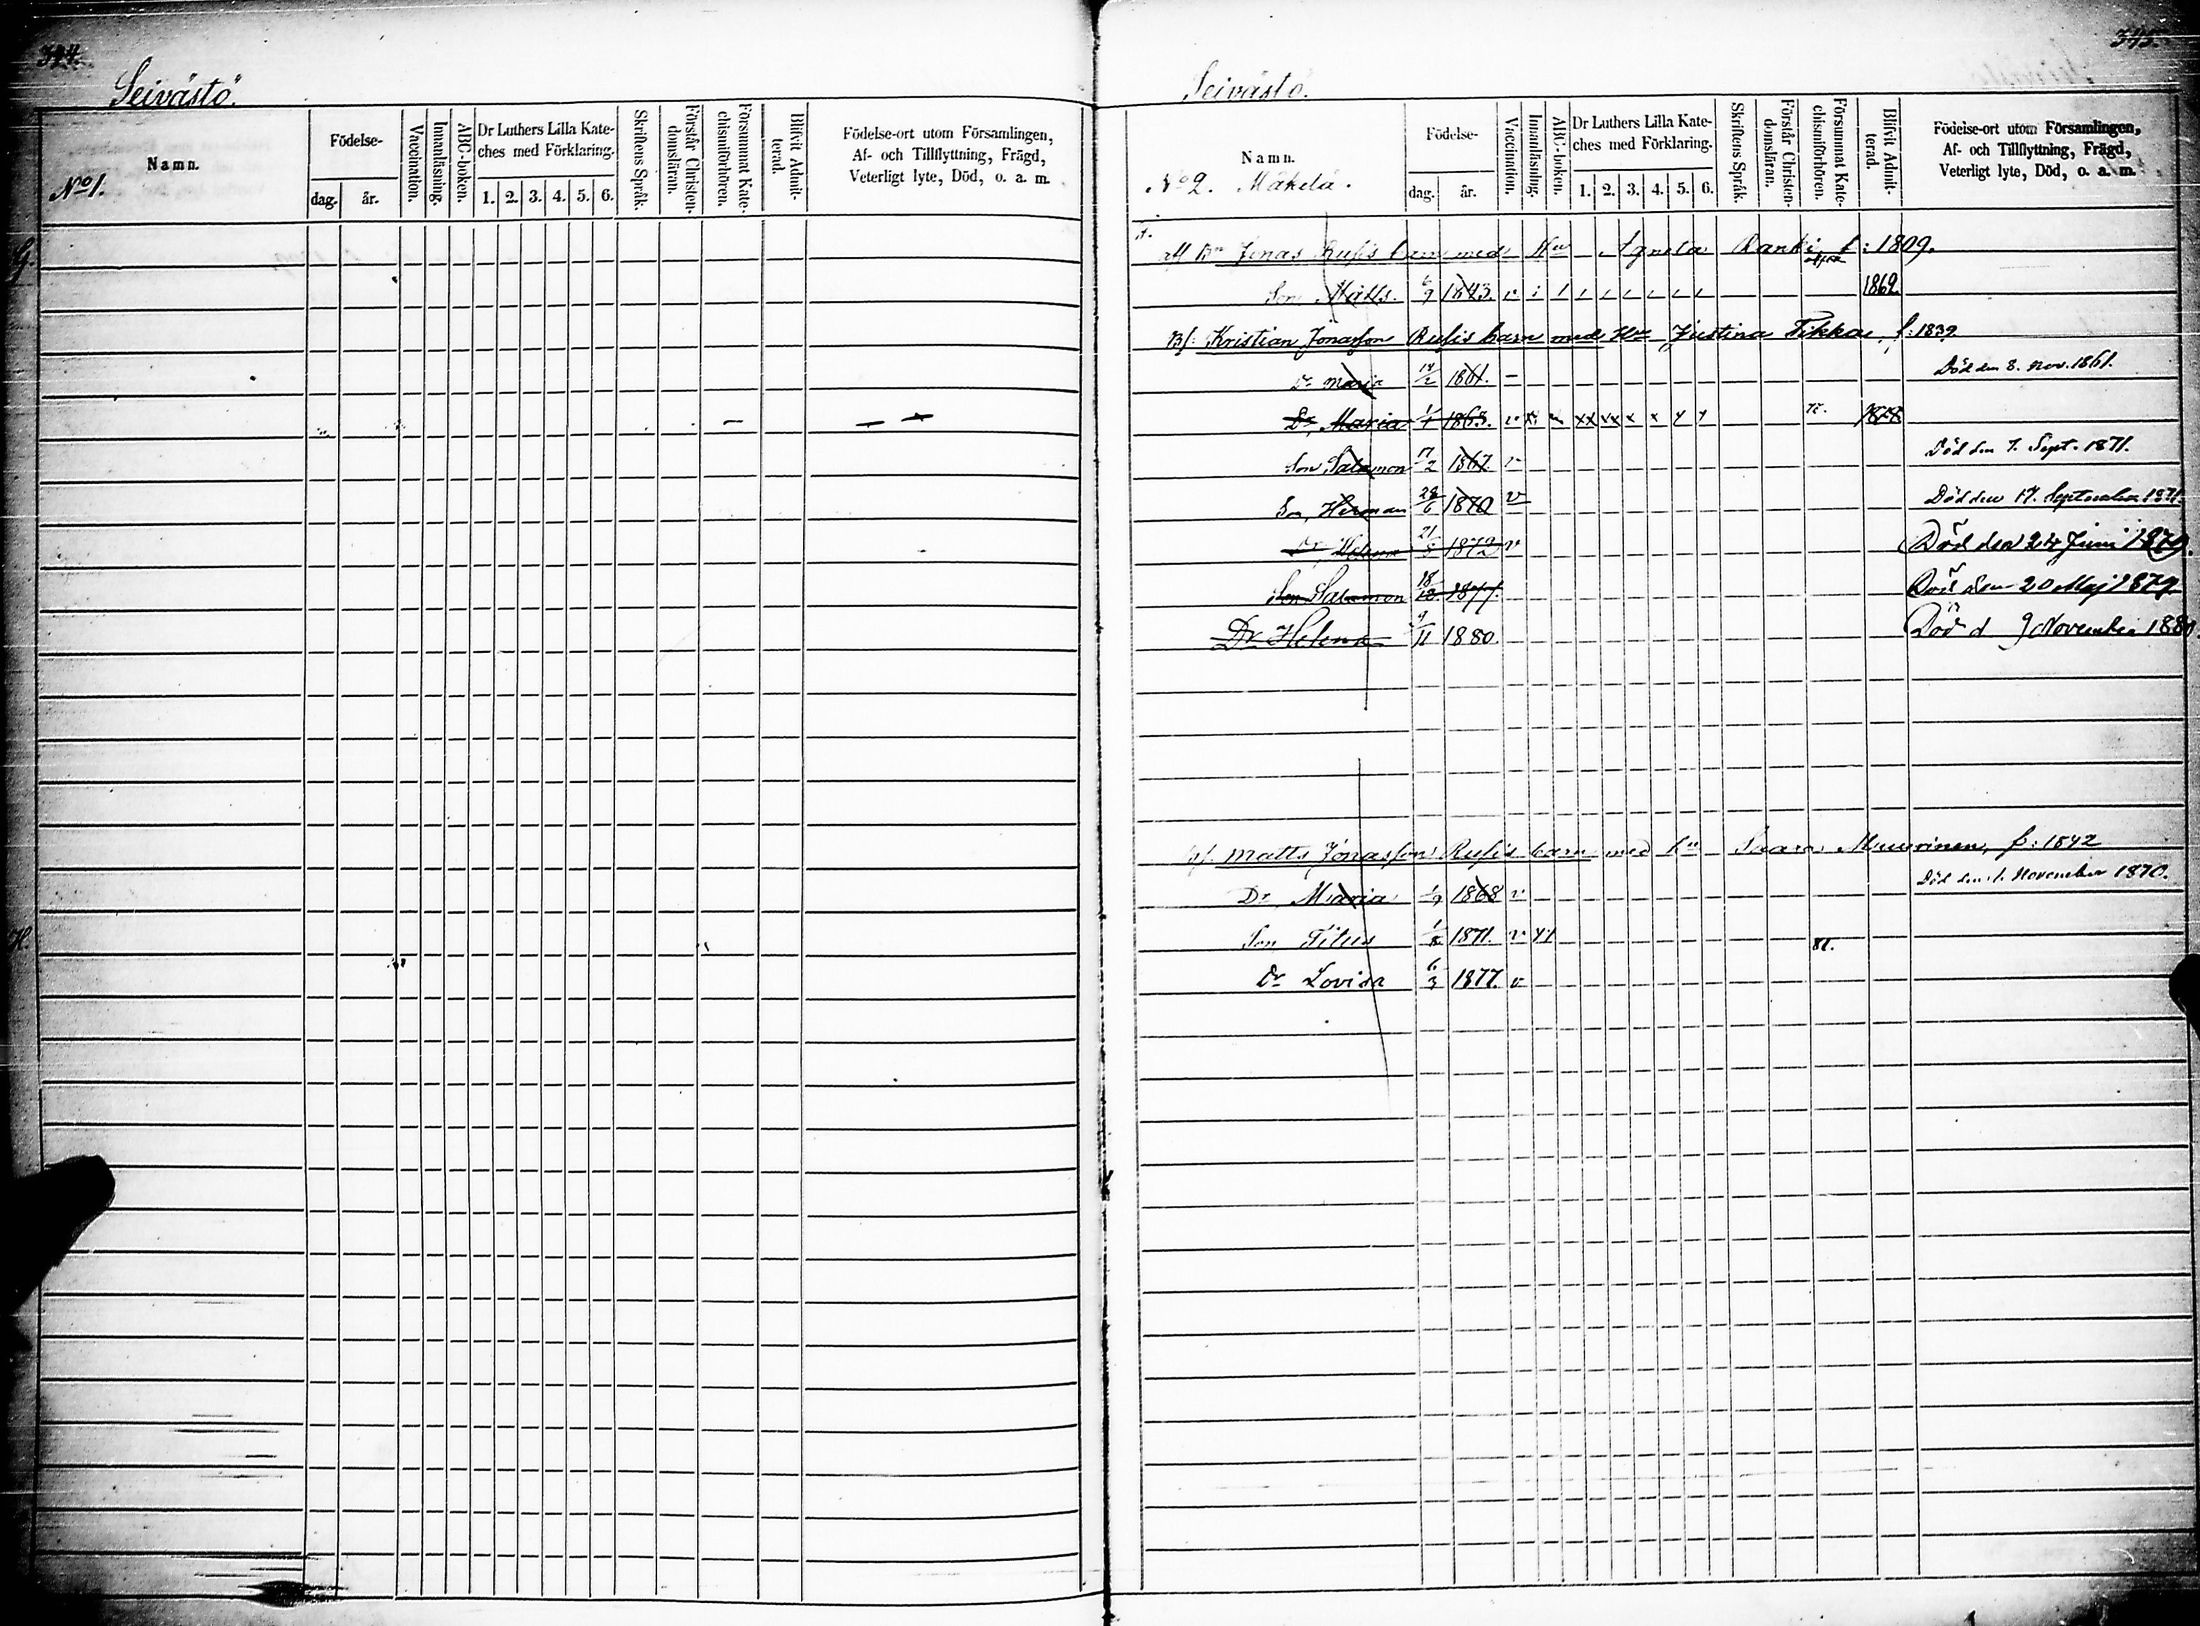 344.
Seivästö.
Namn.
No 1.
Födelse-
dag.
år.
Vaccination.
Innanläsning.
ABC-boken.
Dr Luthers Lilla Kate-
ches med Förklaring.
1. 2. 3. 4. 5. 6.
Skriftens Språk.
Förstår Christen-
domsläran.
Försummat Kate-
chismiförhören.
Blifvit Admit-
terad.
Födelse-ort utom Församlingen,
Af- och Tillflyttning, Frägd,
Veterligt lyte, Död, o. a. m.
G.
H.
345.
Seivästö.
Namn.
No 2. Mäkelä.
Födelse-
dag.
år.
Vaccination.
Innanläsning.
ABC-boken.
Dr Luthers Lilla Kate-
ches med Förklaring.
1. 2. 3. 4. 5. 6.
Skriftens Språk.
Förstår Christen-
domsläran.
Försummat Kate-
chismiförhören.
Blifvit Admit-
terad.
Födelse-ort utom Församlingen,
Af- och Tillflyttning, Frägd,
Veterligt lyte, Död, o. a. m.
Jonas Rusis barn med Hu Agneta Ranki f: 1809.
Son Matts. 6/9 1843. v 1862.
Bf. Kristian Jonasson Rusis barn med Hu Justina Tikka, f: 1839.
Dr Maria 14/2 1861. – Död den 8. Nov. 1861.
Dr Maria 1/4 1863. v x x xx xx x x 77. 1878
Son Salamon 17/2 1867. v Död den 7. Sept. 1871.
Son, Herman 28/6 1870 v Död den 17. September 1871.
Dr Helena 21/8 1872 v Död den 24 Juni 1879.
Son Salamon 18/12 1877 Död den 20 Maj 1879
Dr Helena 9/11 1880. Död d 9 November 1880.
Bf. Matts Jonasson Rusis barn med hu Saara Muurinen, f: 1842
Dr Maria 1/9 1868 v Död den 1. November 1870.
Son Titus 1/8 1871. v 81.
Dr Lovisa 6/3 1877. v